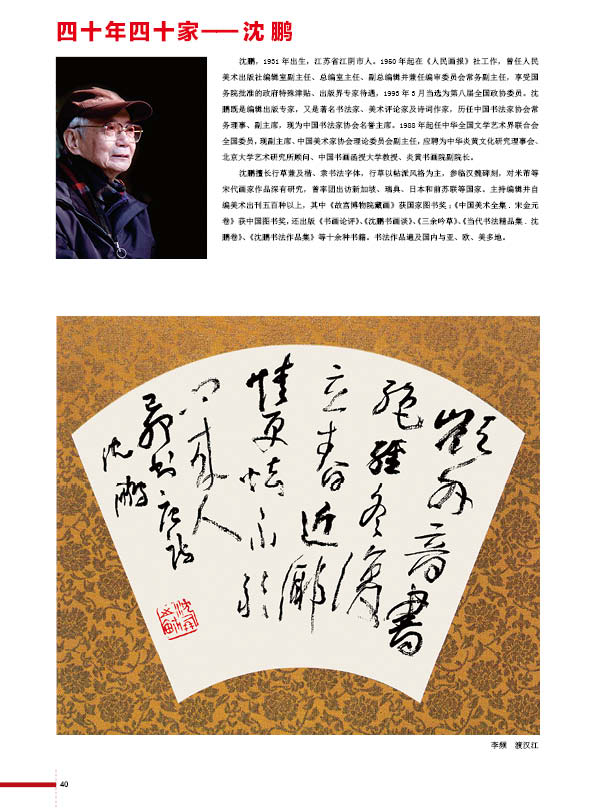 四十年四十家——沈鹏
沈鹏，1931年出生，江苏省江阴市人。1950年起在《人民画报》社工作，曾任人民
美术出版社编辑室副主任、总编室主任、副总编辑并兼任编审委员会常务副主任，享受国
务院批准的政府特殊津贴、出版界专家待遇，1993年3月当选为第八届全国政协委员。沈
鹏既是编辑出版专家，又是著名书法家、美术评论家及诗词作家，历任中国书法家协会常
务理事、副主席，现为中国书法家协会名誉主席。1988年起任中华全国文学艺术界联合会
全国委员，现副主席、中国美术家协会理论委员会副主任，应聘为中华炎黄文化研究理事会、
北京大学艺术研究所顾问、中国书画函授大学教授、炎黄书画院副院长。
沈鹏擅长行草兼及楷、隶书法字体，行草以帖派风格为主，参临汉魏碑刻，对米芾等
宋代画家作品深有研究，曾率团出访新加坡、瑞典、日本和前苏联等国家。主持编辑并自
编美术出刊五百种以上，其中《故宫博物院藏画》获国家图书奖；《中国美术全集．宋金元
卷》获中国图书奖，还出版《书画论评》、《沈鹏书画谈》、《三余吟草》、《当代书法精品集．沈
鹏卷》、《沈鹏书法作品集》等十余种书籍。书法作品遍及国内与亚、欧、美多地。
嶺外音書
絕經冬復
立春近鄉
情更怯不敢
问來人
己卯書唐詩
沈鵬
李频　渡汉江
40